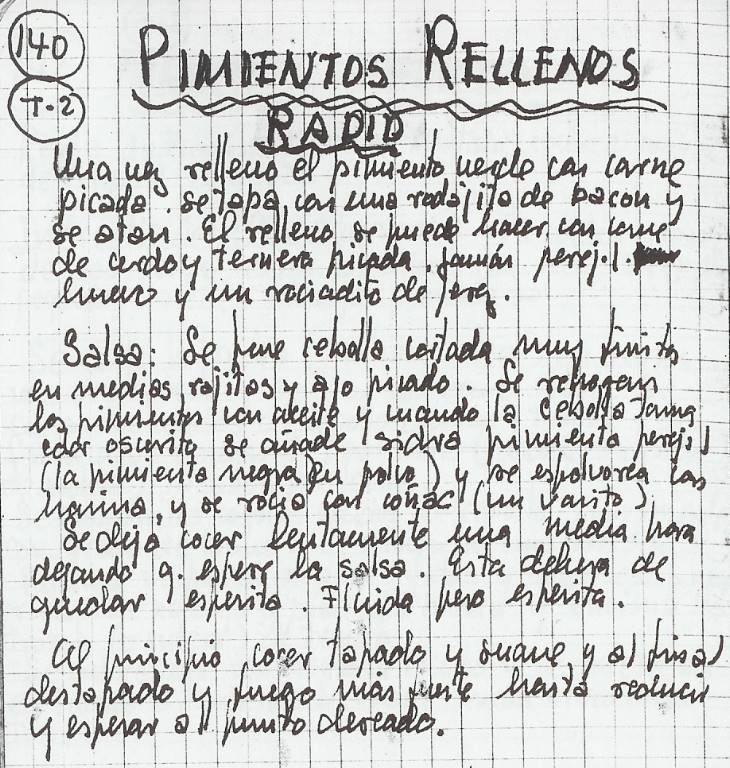 140
T-2
PIMIENTOS RELLENOS
RADIO
Una vez relleno el pimiento verde con carne
picada. se tapa con una rodajita de bacon y
se atan. El relleno se puede hacer con carne
de cerdo y ternera picada. jamón perejil
huevo y un rociadito de jerez.
Salsa: Se pone cebolla cortada muy finita
en medias rajitas y ajo picado. Se rehogan
los pimientos con aceite y cuando la cebolla toma
color oscurito se añade sidra pimienta perejil
(la pimienta negra en polvo) y se espolvorea con
harina, y se rocia con coñac (un vasito)
Se deja cocer lentamente una media hora
dejando q. espere la salsa. Esta debera de
quedar esperita. Fluida pero esperita.
Al principio cocer tapado y suave y al final
destapado y fuego más fuerte hasta reducir
y esperar al punto deseado.